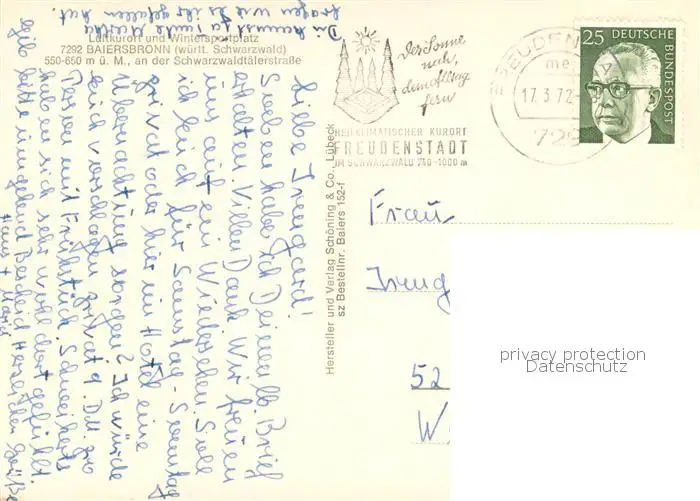 Du kannst ja mal Martha
fragen wie es ihr gefallen hat.
Luftkurort und Wintersportplatz
7292 BAIERSBRONN (württ. Schwarzwald)
550-650 m ü. M., an der Schwarzwaldtälerstraße
Liebe Irmgard!
Soeben habe ich Deinen lb. Brief
erhalten. Vielen Dank. Wir freuen
uns auf ein Wiedersehen. Soll
ich Euch für Samstag - Sonntag
privat oder hier im Hotel eine
Übernachtung sorgen? Ich würde
Euch vorschlagen privat 9. D.M. pro
Person mit Frühstück. Schneiders
haben sich sehr wohl dort gefühlt.
Gib bitte umgehend Bescheid Herzliche Grüße
Hans + Maria
Hersteller und Verlag Schöning & Co., Lübeck
sz Bestellnr. Baiers 152-f
Der Sonne
nah,
dem Alltag
fern
HEILKLIMATISCHER KURORT
FREUDENSTADT
IM SCHWARZWALD 740-1000 m
FREUDENSTA
me
17.3.72
729
25 DEUTSCHE
BUNDESPOST
Frau
Irmg
52
W
privacy protection
Datenschutz